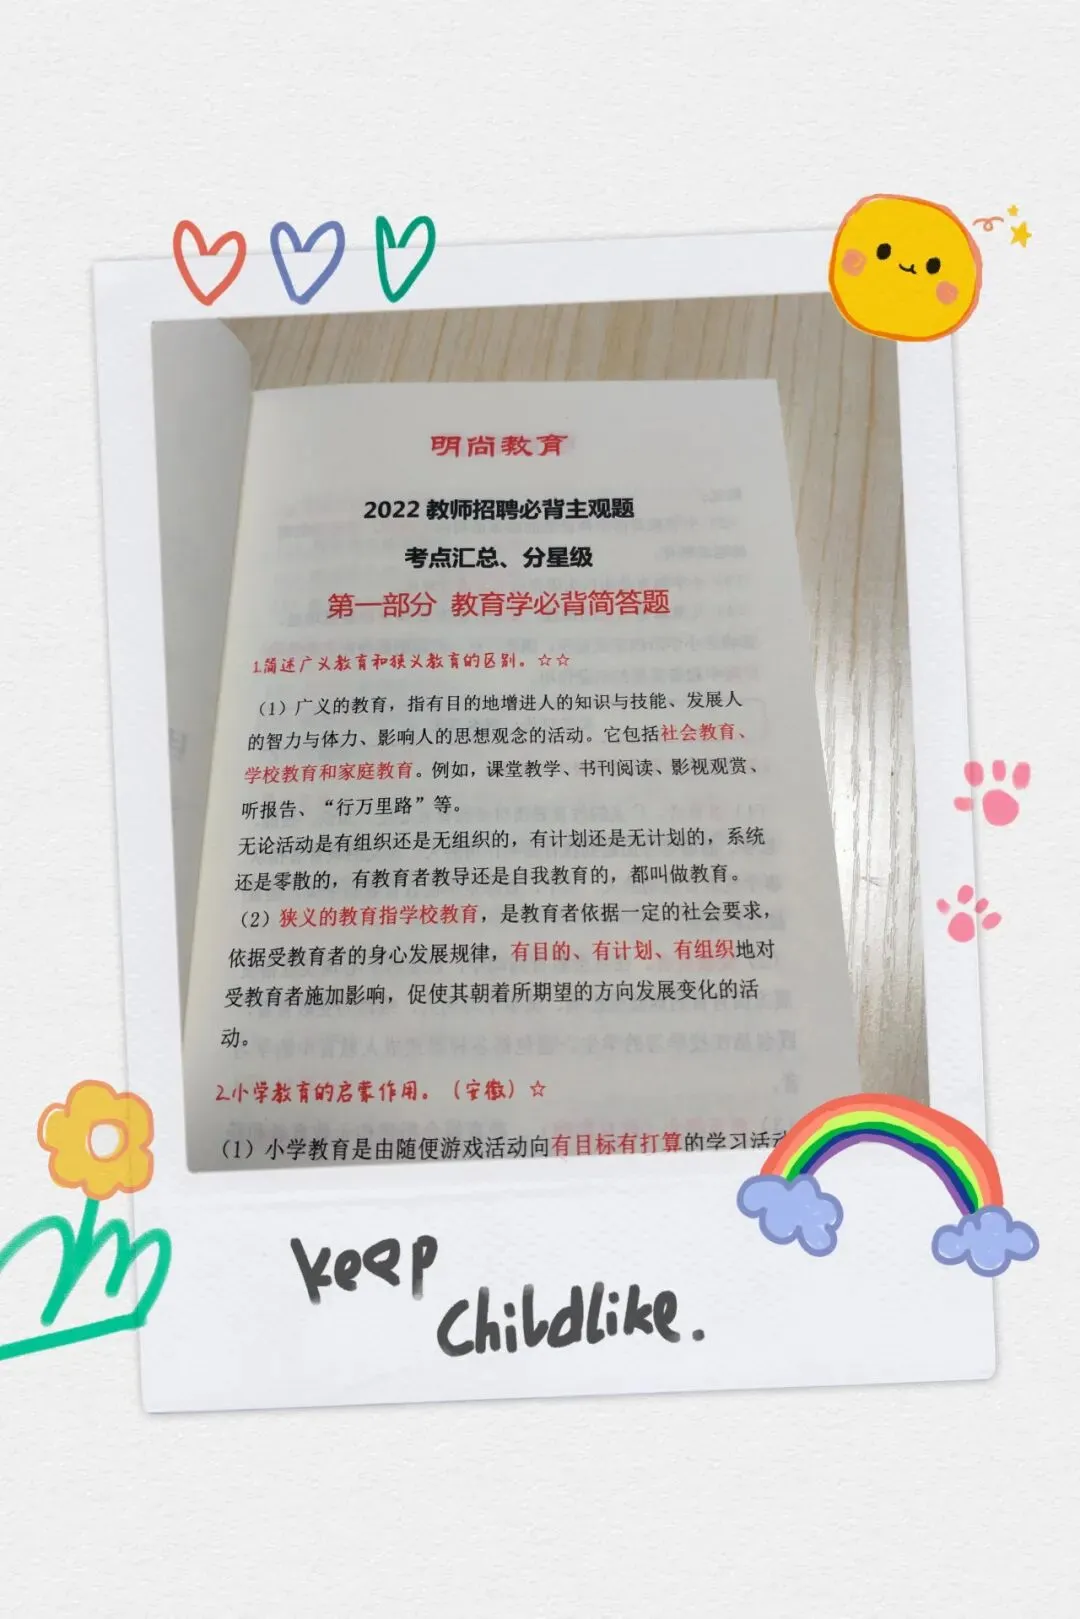 明尚教育
2022 教师招聘必背主观题
考点汇总、分星级
第一部分 教育学必背简答题
1.简述广义教育和狭义教育的区别。☆☆
（1）广义的教育，指有目的地增进人的知识与技能、发展人
的智力与体力、影响人的思想观念的活动。它包括社会教育、
学校教育和家庭教育。例如，课堂教学、书刊阅读、影视观赏、
听报告、“行万里路”等。
无论活动是有组织还是无组织的，有计划还是无计划的，系统
还是零散的，有教育者教导还是自我教育的，都叫做教育。
（2）狭义的教育指学校教育，是教育者依据一定的社会要求，
依据受教育者的身心发展规律，有目的、有计划、有组织地对
受教育者施加影响，促使其朝着所期望的方向发展变化的活
动。
2.小学教育的启蒙作用。（安徽）☆
（1）小学教育是由随便游戏活动向有目标有打算的学习活动
keep
Childlike.